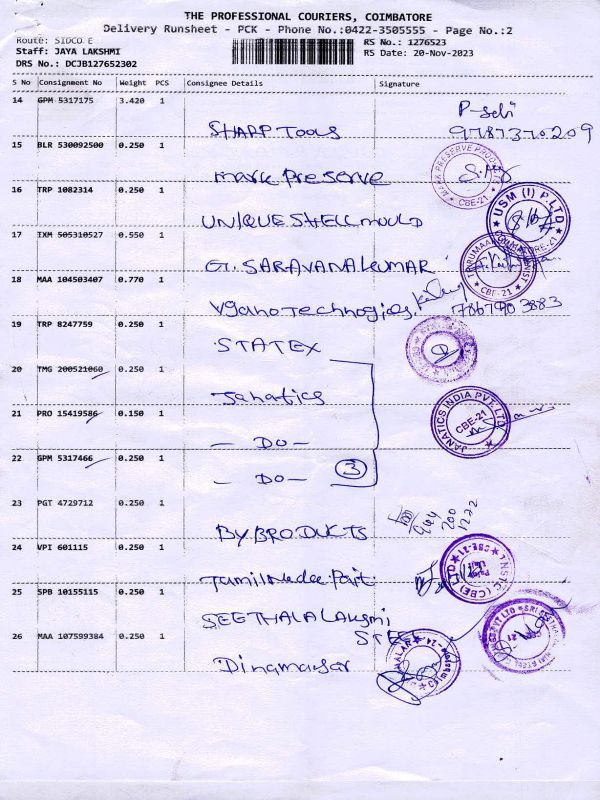 THE PROFESSIONAL COURIERS, COIMBATORE
Delivery Runsheet - PCK - Phone No.:0422-3505555 - Page No.:2
Route: SIDCO E
RS No.: 1276523
Staff: JAYA LAKSHMI
RS Date: 20-Nov-2023
DRS No.: DCJB127652302
S No Consignment No Weight PCS Consignee Details Signature
14 GPM 5317175 3.420 1
SHARP TOOLS
9787370209
15 BLR 530092500 0.250 1
Mark Preserve
MARK PRESERVE PRODU
CBE-21
16 TRP 1082314 0.250 1
UNIQUE SHELL MOULD
USM (I) P LTD
17 IXM 505310527 0.550 1
G. SARAVANAKUMAR
CBE-21
18 MAA 104503407 0.770 1
7867903883
19 TRP 8247759 0.250 1
STATEX
20 TMG 200521060 0.250 1
Janatics
21 PRO 15419586 0.150 1
- DO -
JANATICS INDIA PVT. LTD
CBE-21
22 GPM 5317466 0.250 1
- DO -
3
23 PGT 4729712 0.250 1
BY PRODUCTS
24 VPI 601115 0.250 1
TNSTC (CBE) LTD
CBE-21
25 SPB 10155115 0.250 1
SEETHALALAKSMI
STEE
26 MAA 107599384 0.250 1
Dinamalar